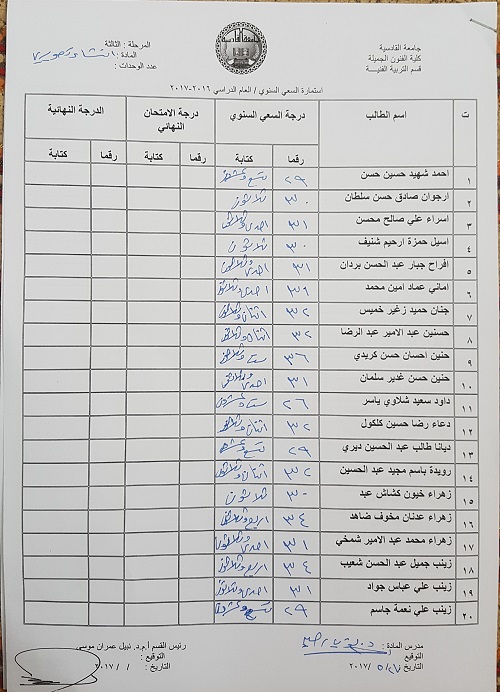 جامعة القادسية
كلية الفنون الجميلة
قسم التربية الفنية
المرحلة : الثالثة
المادة :
عدد الوحدات :
استمارة السعي السنوي / العام الدراسي ٢٠١٦-٢٠١٧
ت اسم الطالب درجة السعي السنوي درجة الامتحان النهائي الدرجة النهائية
رقما كتابة رقما كتابة رقما كتابة
١ احمد شهيد حسين حسن ٢٩ تسع وعشرون
٢ ارجوان صادق حسن سلطان ٣٠ ثلاثون
٣ اسراء علي صالح محسن ٣١ احدى وثلاثون
٤ اسيل حمزة ارحيم شنيف ٣٠ ثلاثون
٥ افراح جبار عبد الحسن بردان ٣١ احدى وثلاثون
٦ اماني عماد امين محمد ٣١ احدى وثلاثون
٧ جنان حميد زغير خميس ٣٢ اثنان وثلاثون
٨ حسنين عبد الامير عبد الرضا ٣٢ اثنان وثلاثون
٩ حنين احسان حسن كريدي ٣٦ ست وثلاثون
١٠ حنين حسن غدير سلمان ٣١ احدى وثلاثون
١١ داود سعيد شلاوي ياسر ٢٦ ست وعشرون
١٢ دعاء رضا حسين كلكول ٣٢ اثنان وثلاثون
١٣ ديانا طالب عبد الحسين ديري ٢٩ تسع وعشرون
١٤ رويدة باسم مجيد عبد الحسين ٣٢ اثنان وثلاثون
١٥ زهراء خيون كشاش عبد ٣٠ ثلاثون
١٦ زهراء عدنان مخوف ضاهد ٣٤ اربع وثلاثون
١٧ زهراء محمد عبد الامير شمخي ٣١ احدى وثلاثون
١٨ زينب جميل عبد الحسن شعيب ٣٤ اربع وثلاثون
١٩ زينب علي عباس جواد ٣١ احدى وثلاثون
٢٠ زينب علي نعمة جاسم ٢٩ تسع وعشرون
مدرس المادة :
التوقيع :
التاريخ : / ٢٠١٧
رئيس القسم أ.م.د. نبيل عمران موسى
التوقيع :
التاريخ : / / ٢٠١٧